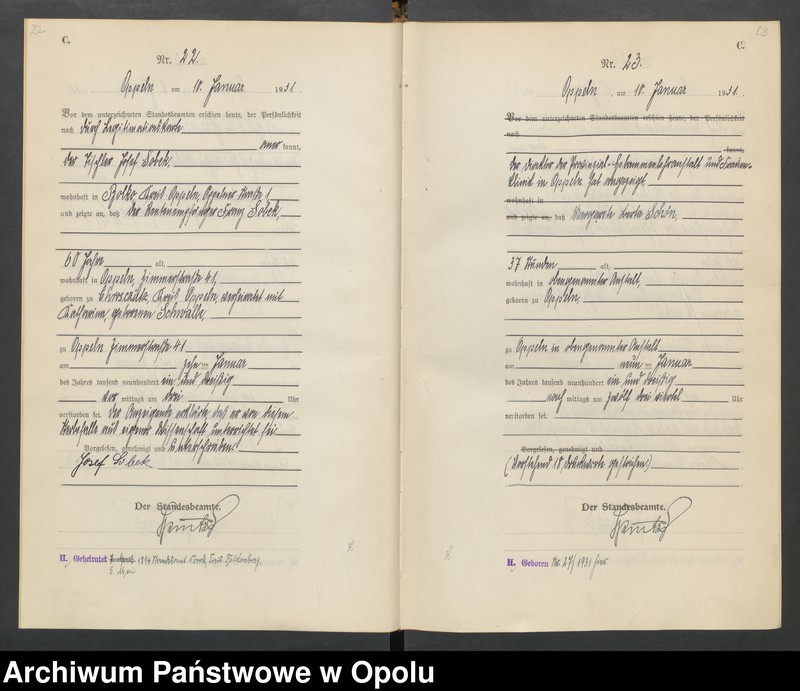 22
C.
Nr. 22.
Oppeln am 10. Januar 1931.
Vor dem unterzeichneten Standesbeamten erschien heute, der Persönlichkeit
nach durch Legitimationskarte
kannt,
der Tischler Josef Sobek.
wohnhaft in Bolko, Kreis Oppeln, Oppelner Straße 1,
und zeigte an, daß der Rentenempfänger Franz Sobek,
60 Jahre alt,
wohnhaft in Oppeln, Zimmerstraße 41,
geboren zu Chrosczütz, Kreis Oppeln, verheiratet mit
Katharina, geborenen
zu Oppeln Zimmerstraße 41
am zehn ten Januar
des Jahres tausend neunhundert ein und dreißig
vor mittags um drei Uhr
verstorben sei. Der Anzeigende erklärte, daß er von diesem
Sterbefalle aus eigener Wissenschaft unterrichtet sei.
Vorgelesen, genehmigt und unterschrieben
Josef Sobek
Der Standesbeamte.
H. Geheiratet 1894 Standesamt
23
C.
Nr. 23.
Oppeln, am 10. Januar 1931.
Vor dem unterzeichneten Standesbeamten erschien heute, der Persönlichkeit
nach
kannt,
Der Direktor der Provinzial-Hebammenlehranstalt und Frauen-
klinik in Oppeln hat angezeigt,
wohnhaft in
und zeigte an, daß Margarete Berta Schön,
37 Stunden alt,
wohnhaft in obengenannter Anstalt,
geboren zu Oppeln,
zu Oppeln in obengenannter Anstalt
am neun ten Januar
des Jahres tausend neunhundert ein und dreißig
nach mittags um zwölf drei viertel Uhr
verstorben sei.
Vorgelesen, genehmigt und
(Vorstehend 18 Druckworte gestrichen)
Der Standesbeamte.
H. Geboren Nr. 27/1931 hier
Archiwum Państwowe w Opolu